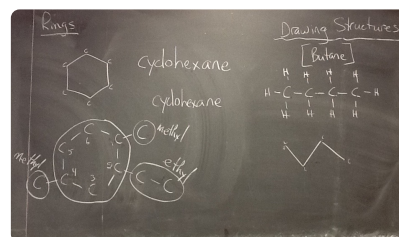 Rings
C
C C
C C
C
cyclohexane
cyclohexane
C
C C 6
C 5 C
C 4 C
3
C
C methyl
methyl C
ethyl
C - C
Drawing Structures
[Butane]
H H H H
H - C - C - C - C - H
H H H H